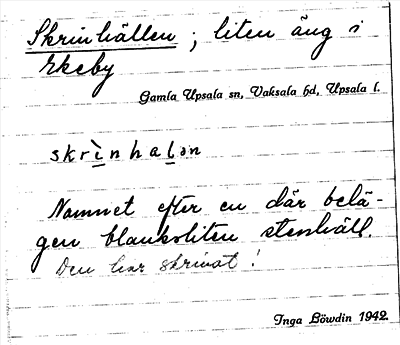 Skrinhällen ; liten äng i
Ekeby
Gamla Upsala sn, Vaksala hd, Upsala l.
skrìnhaḷən
Namnet efter en där belä-
gen blanksliten stenhäll.
Den har skrinat !
Inga Löwdin 1942.